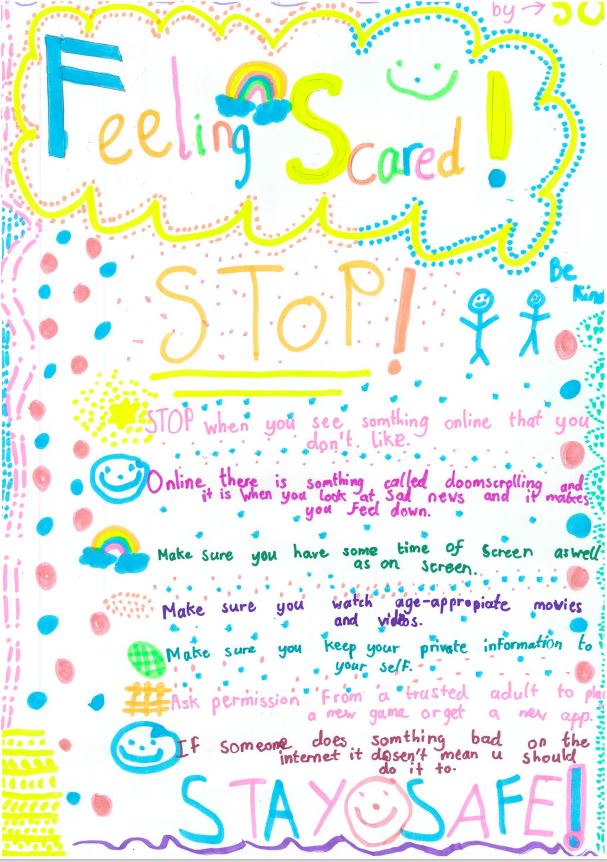 by → JO
Feeling Scared!
STOP!
Be
Kind
STOP when you see somthing online that you
don't like.
Online there is somthing called doomscrolling and
it is when you look at sad news and it makes
you feel down.
Make sure you have some time of screen aswell
as on screen.
Make sure you watch age-appropiate movies
and videos.
Make sure you keep your private information to
your self.
Ask permission from a trusted adult to play
a new game or get a new app.
If someone does somthing bad on the
internet it dosen't mean u should
do it to.
STAY SAFE!